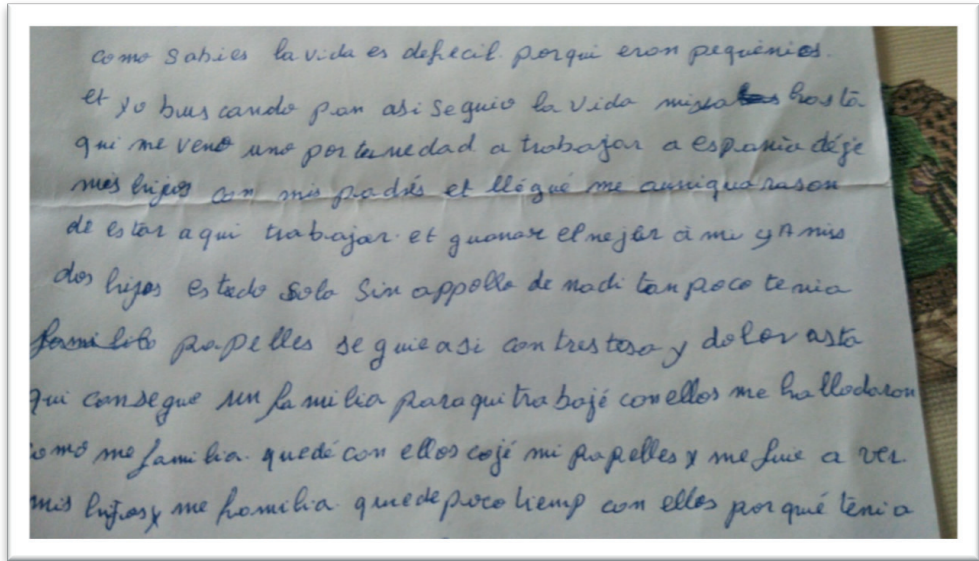 como sabies la vida es defecil. porqui eron pequeñios.
et yo buscando pan asi seguio la vida hasta
qui me veno uno portunedad a trabajar a espania déje
mis hijos con mis padrés et llégué me
de estar aqui trabajar et guanar el mejor à mi y A mis
dos hijos estado sola sin appollo de nadi tanpoco tenia
papelles seguie asi con trestesa y dolor asta
qui consegue un familia paraqui trabajé con ellos me halludaron
como me familia. quedé con ellos cojé mi papelles y me fuie a ver
mis hijos y me familia. quede poco tiemp con ellos porqué tenia